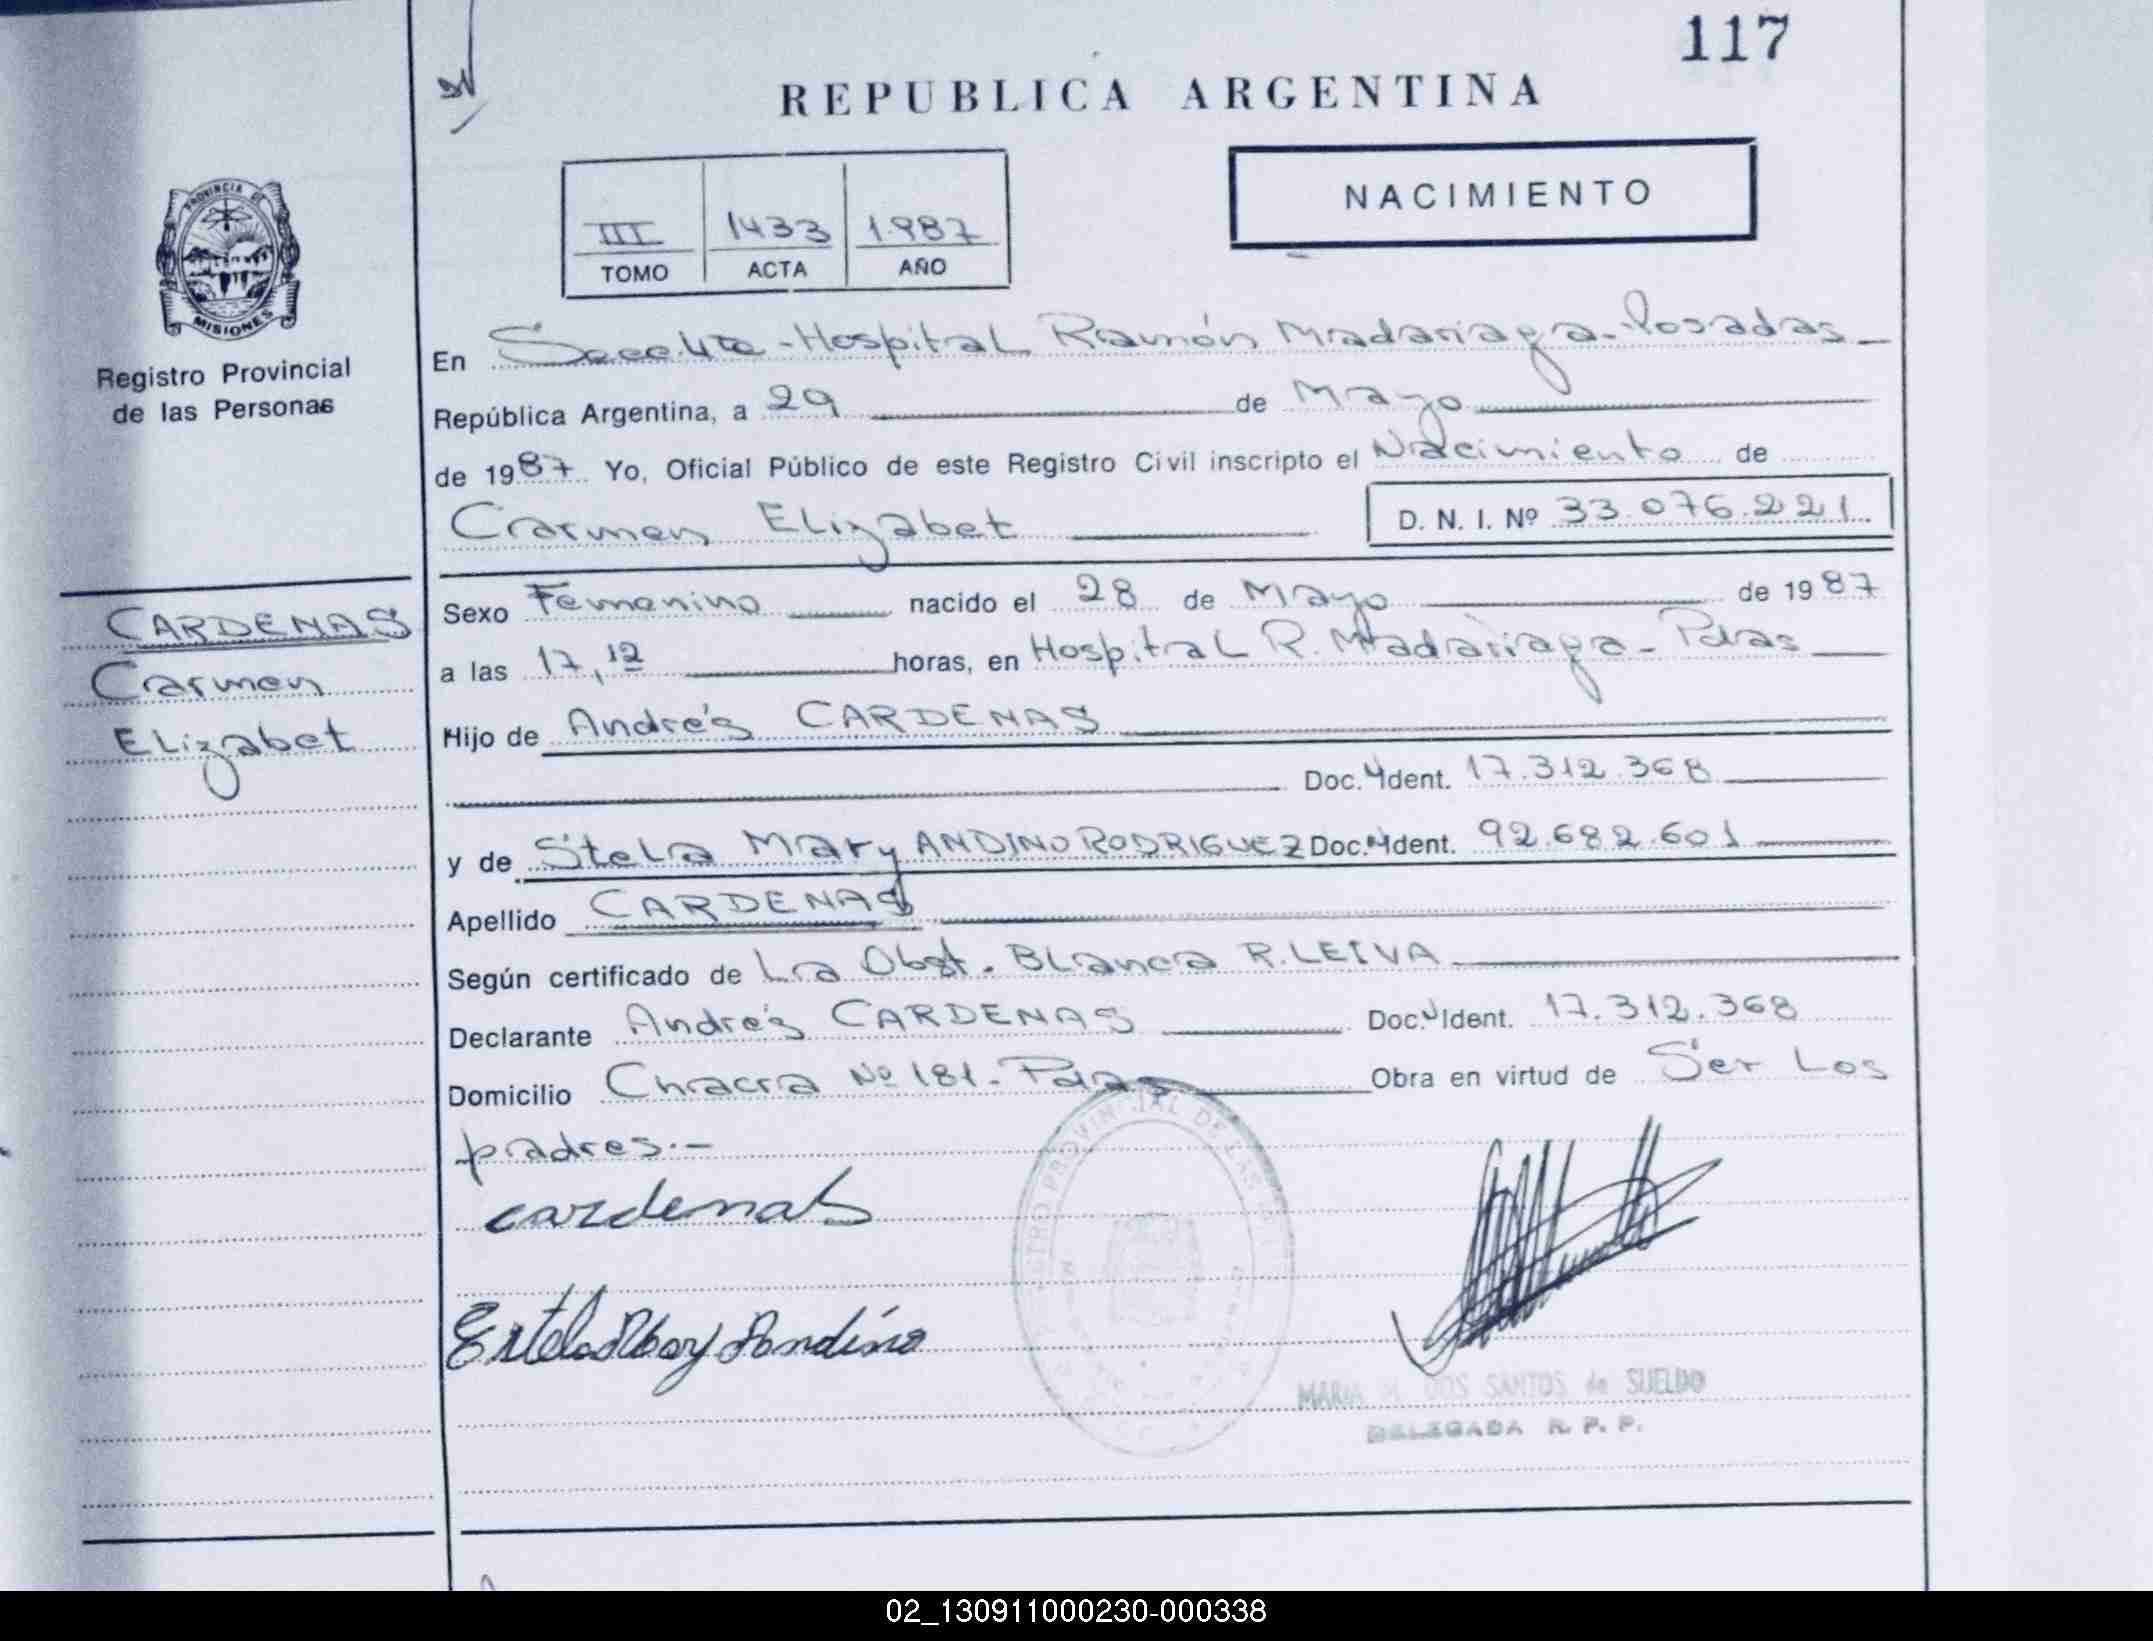 117
REPUBLICA ARGENTINA
NACIMIENTO
III 1433 1.987
TOMO ACTA AÑO
PROVINCIA DE
MISIONES
Registro Provincial
de las Personas
En Hospital Ramón Madariaga-Posadas
República Argentina, a 29 de Mayo
de 1987 Yo, Oficial Público de este Registro Civil inscripto el Nacimiento de
Carmen Elizabet D. N. I. Nº 33.076.221
CARDENAS
Carmen
Elizabet
Sexo Femenino nacido el 28 de Mayo de 1987
a las 17,12 horas, en Hospital R. Madariaga - Pdas
Hijo de Andrés CARDENAS
Doc. Ident. 17.312.368
y de Stela Mary ANDINO RODRIGUEZ Doc. Ident. 92.682.601
Apellido CARDENAS
Según certificado de La Obst. Blanca R. LEIVA
Declarante Andrés CARDENAS Doc. Ident. 17.312.368
Domicilio Chacra Nº 181- Pdas Obra en virtud de Ser Los
padres.-
cardenas
Estela Mary Andino
PROVINCIAL DE LAS
MARIA DOS SANTOS de SUELDO
DELEGADA R. P. P.
02_130911000230-000338